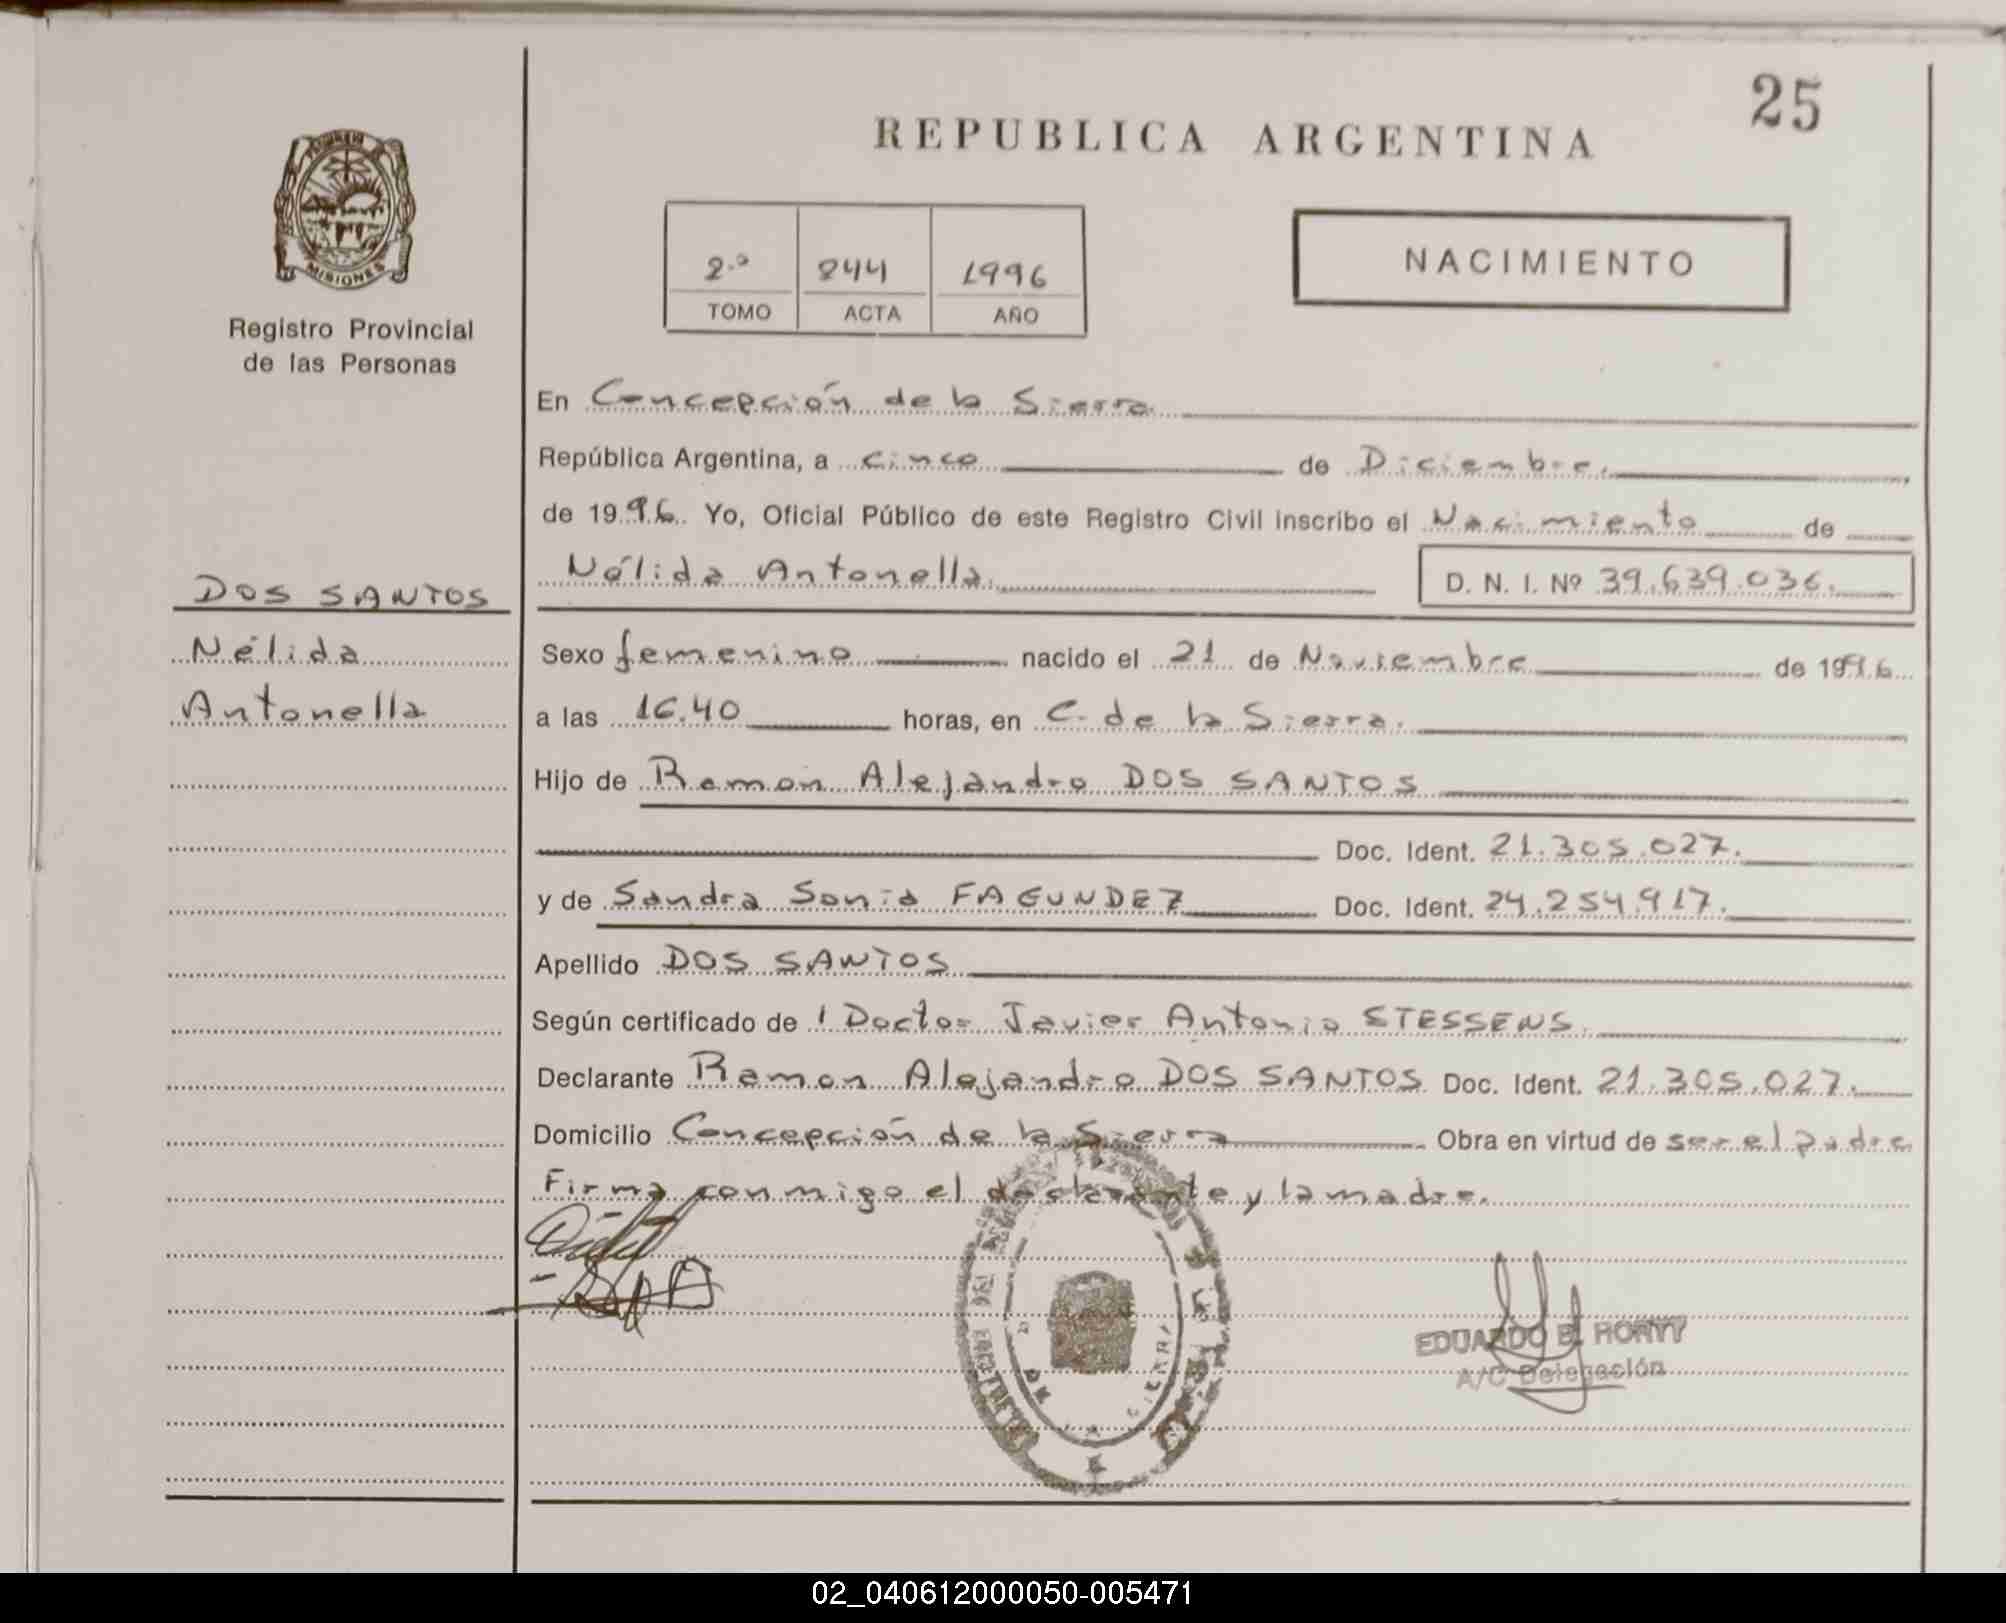 25
REPUBLICA ARGENTINA
MISIONES
Registro Provincial
de las Personas
2.º 244 1996
TOMO ACTA AÑO
NACIMIENTO
En Concepción de la Sierra
República Argentina, a cinco de Diciembre.
de 1996. Yo, Oficial Público de este Registro Civil inscribo el Nacimiento de
Nélida Antonella. D. N. I. Nº 39.639.036.
DOS SANTOS
Nélida
Antonella
Sexo femenino nacido el 21 de Noviembre de 1996
a las 16.40 horas, en C. de la Sierra.
Hijo de Ramon Alejandro DOS SANTOS
Doc. Ident. 21.305.027.
y de Sandra Sonia FAGUNDEZ Doc. Ident. 24.254.917.
Apellido DOS SANTOS
Según certificado de l Doctor Javier Antonio STESSENS.
Declarante Ramon Alejandro DOS SANTOS Doc. Ident. 21.305.027.
Domicilio Concepción de la Sierra Obra en virtud de ser el padre
Firma conmigo el declarante y la madre.
EDUARDO B. RORYY
A/C Delegación
02_040612000050-005471